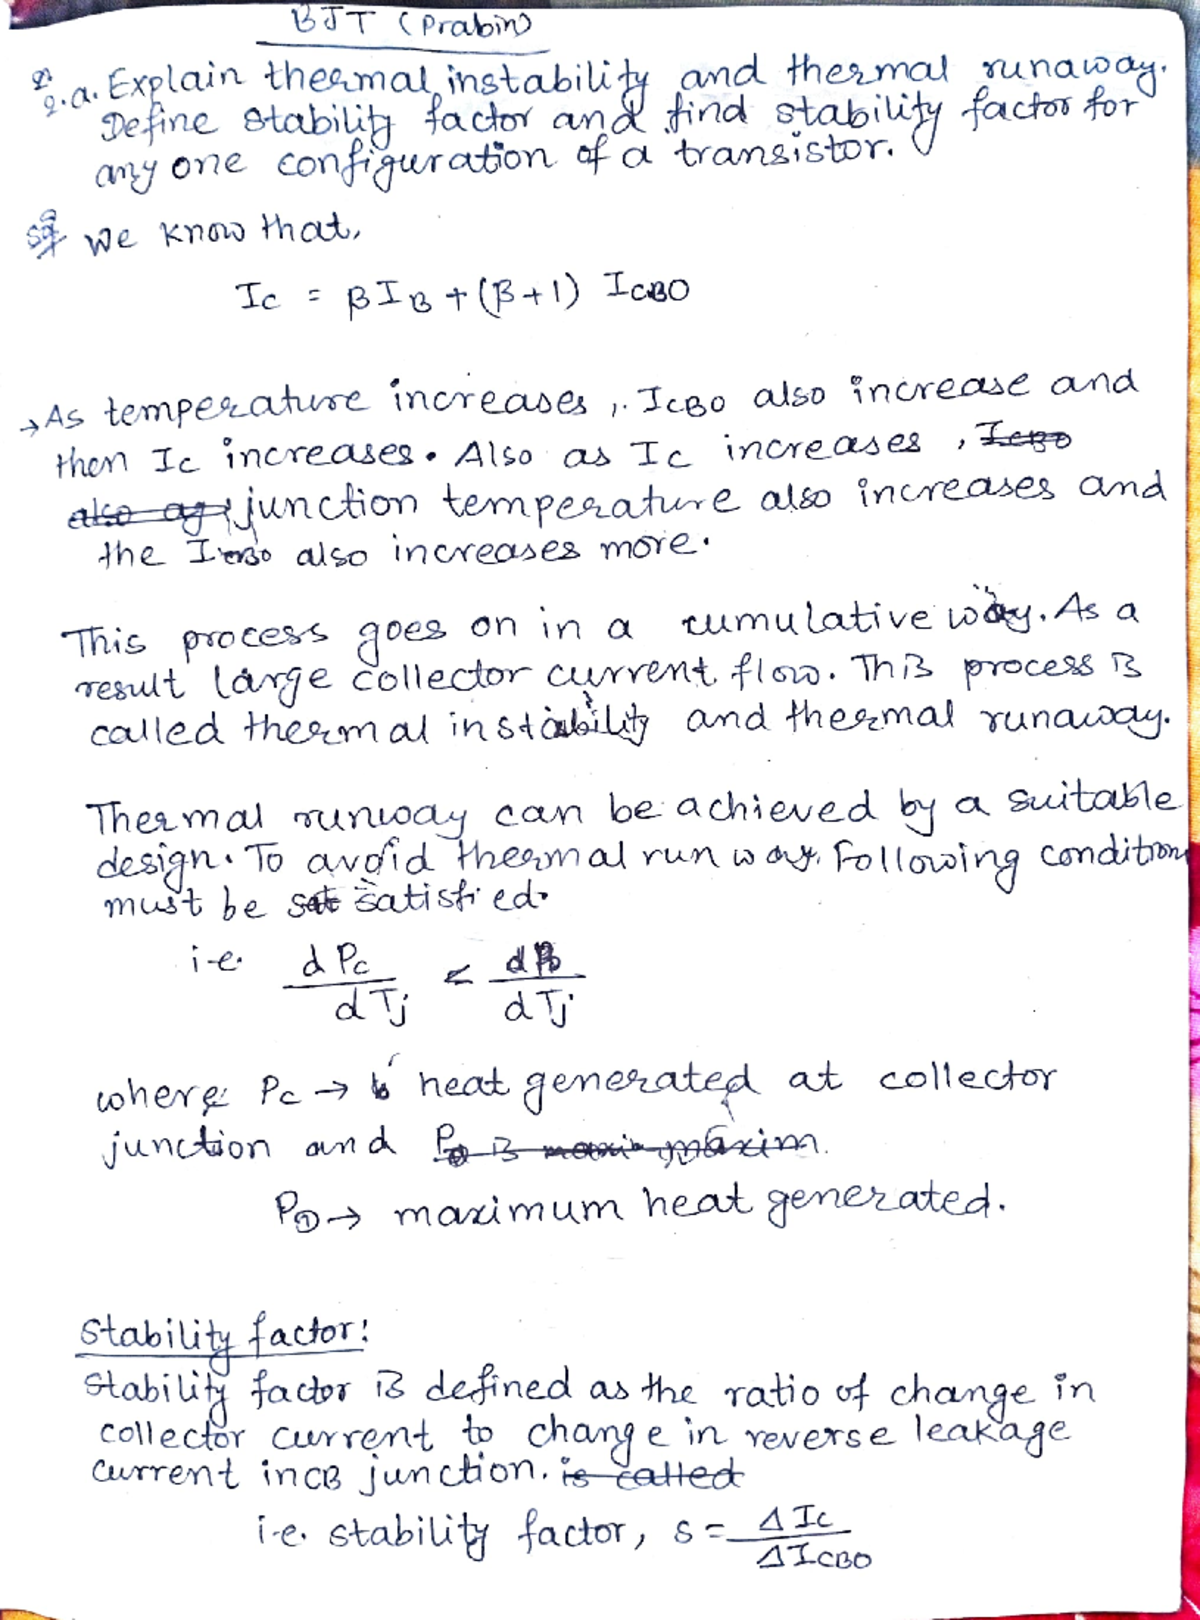 BJT (Prabin)
Q.
2.a. Explain thermal instability and thermal runaway.
Define stability factor and find stability factor for
any one configuration of a transistor.
Solⁿ We know that,
Ic = βIB + (β+1) ICBO
→ As temperature increases, ICBO also increase and
then Ic increases. Also as Ic increases, ICBO
also ag junction temperature also increases and
the ICBO also increases more.
This process goes on in a cumulative way. As a
result large collector current flow. This process is
called thermal instability and thermal runaway.
Thermal runway can be achieved by a suitable
design. To avoid thermal run way. Following condition
must be sat satisfied.
i.e. dPc/dTj < dPD/dTj
where Pc → heat generated at collector
junction and PD is maxim maxim.
PD → maximum heat generated.
Stability factor:
Stability factor is defined as the ratio of change in
collector current to change in reverse leakage
current in CB junction. is called
i.e. stability factor, s = ΔIc/ΔICBO